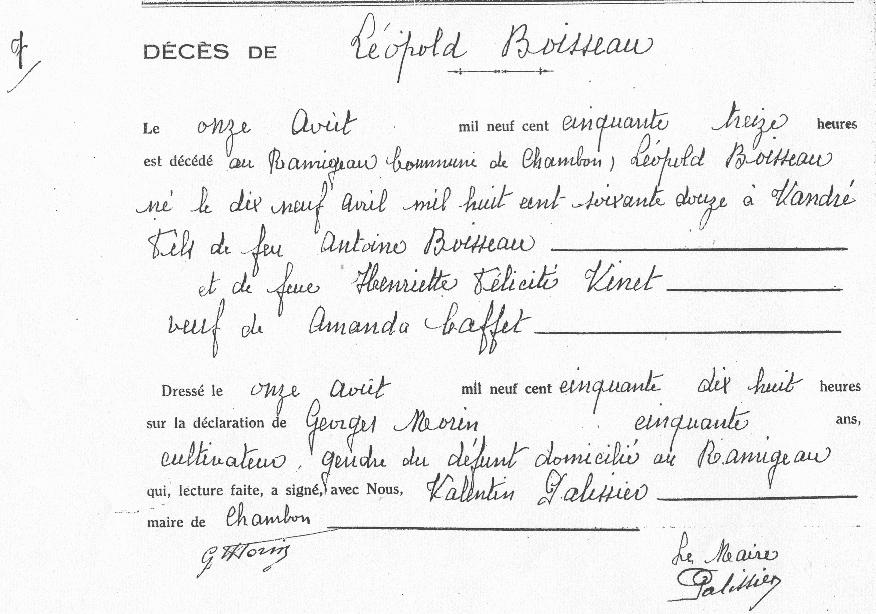 DÉCÈS DE Léopold Boisseau
Le onze Août mil neuf cent cinquante treize heures
est décédé au Ramigeau Commune de Chambon, Léopold Boisseau
né le dix neuf Avril mil huit cent soixante douze à Vandré
Fils de feu Antoine Boisseau
et de feue Henriette Félicité Vinet
veuf de Amanda Caffet
Dressé le onze Août mil neuf cent cinquante dix huit heures
sur la déclaration de Georges Morin cinquante ans,
cultivateur, gendre du défunt domicilié au Ramigeau
qui, lecture faite, a signé, avec Nous, Valentin Palissier
maire de Chambon
G Morin
Le Maire
Palissier